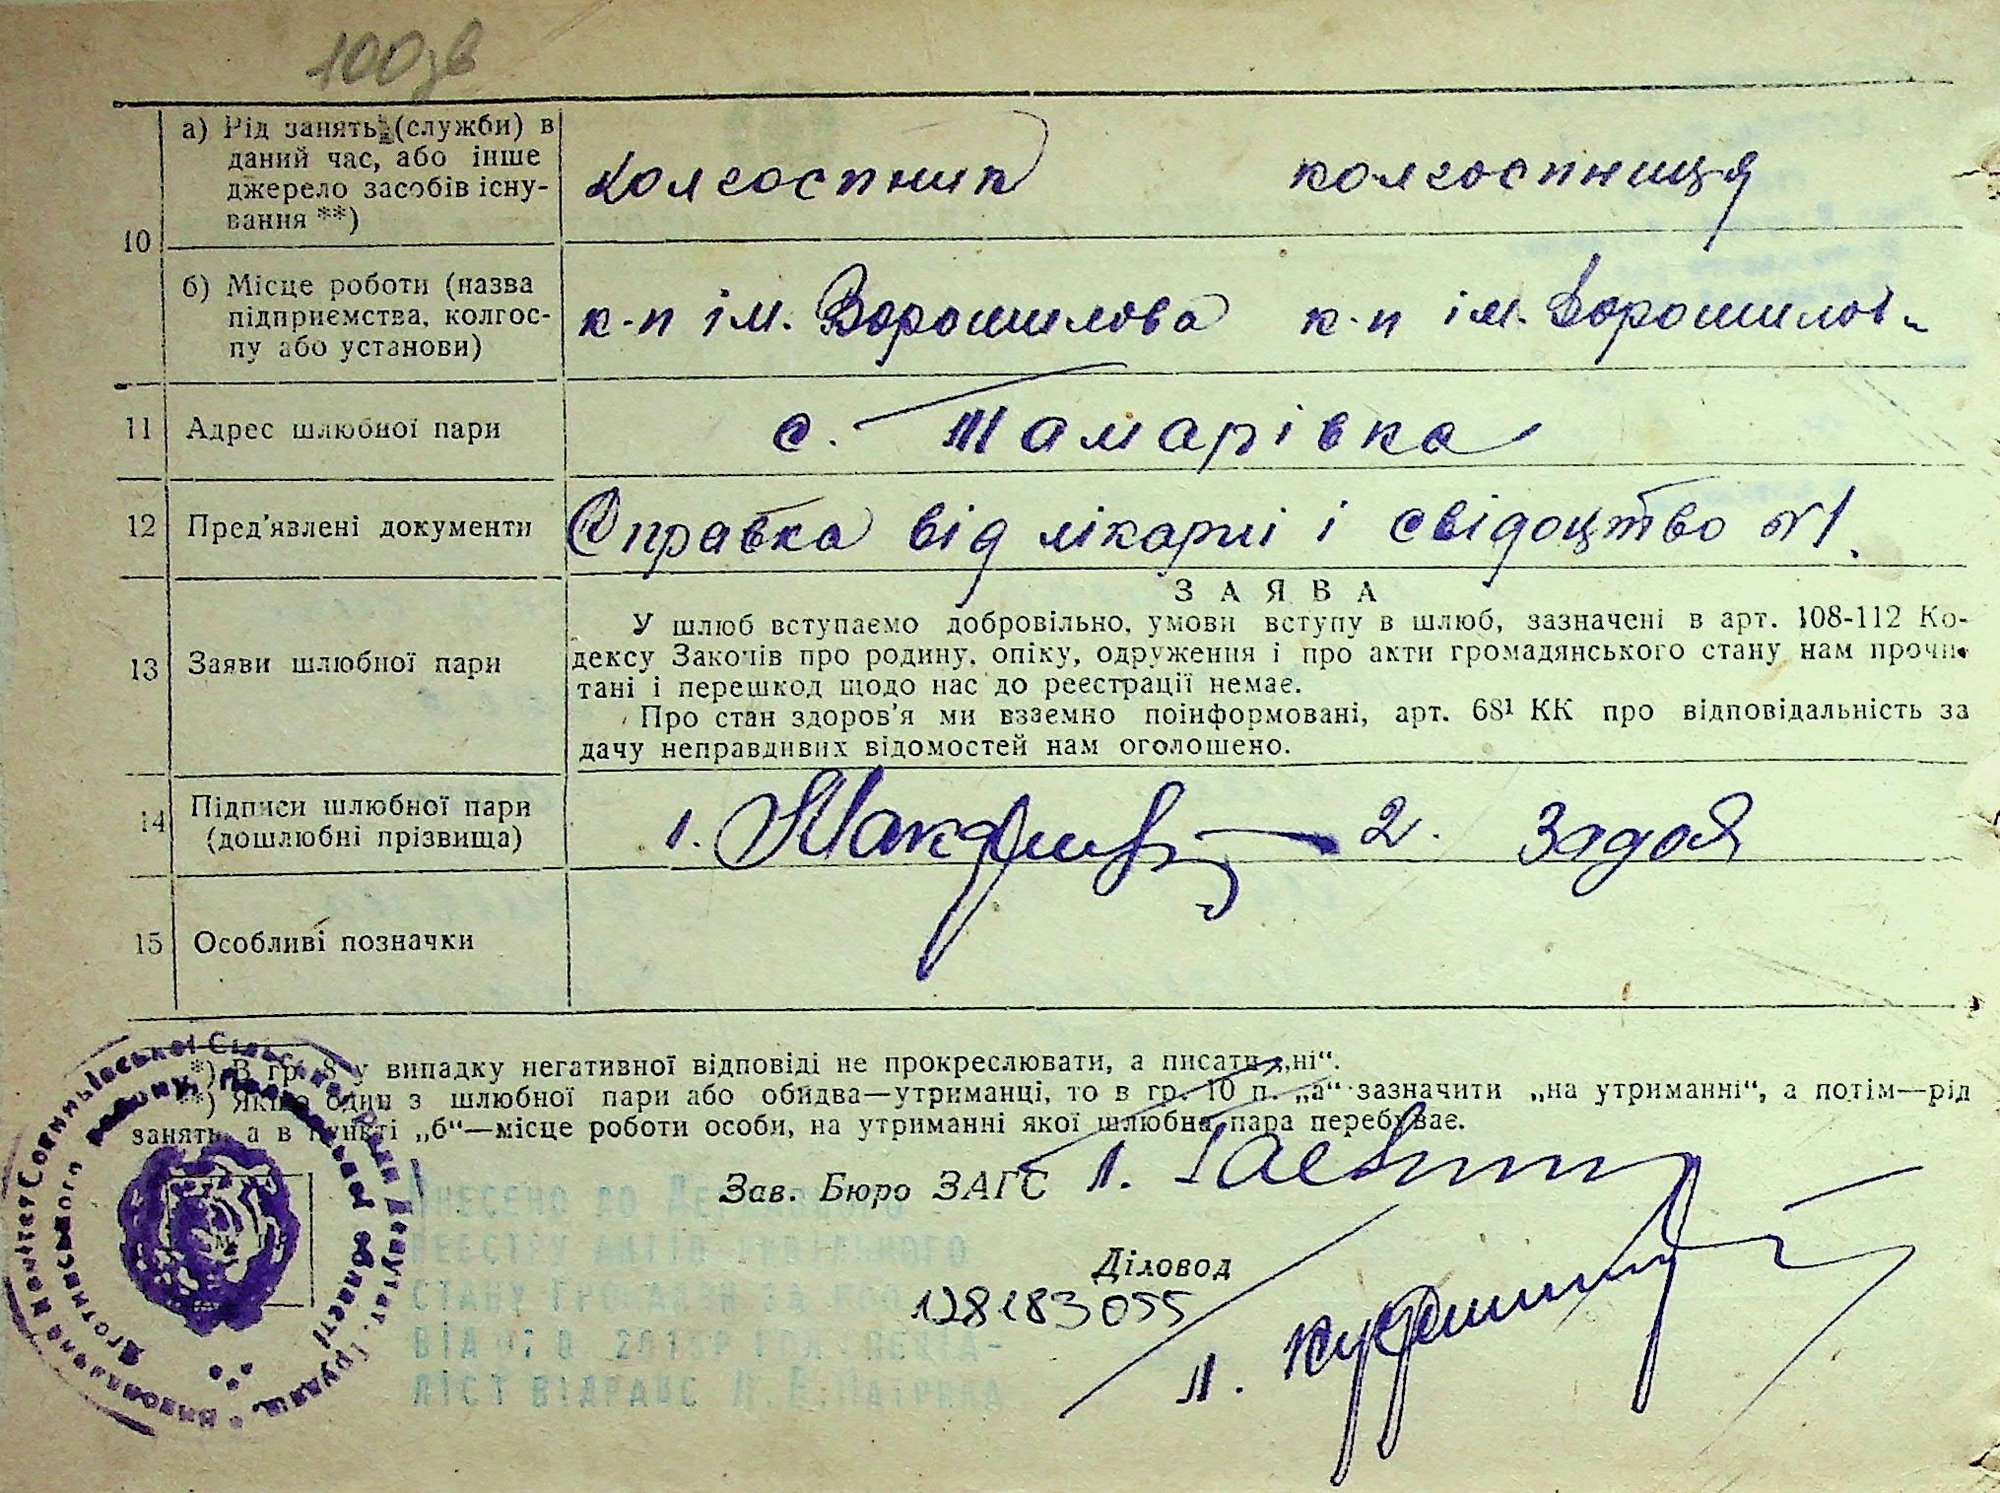 100зв
10
а) Рід занять (служби) в
даний час, або інше
джерело засобів існу-
вання **)
колгоспник колгоспниця
б) Місце роботи (назва
підприємства, колгос-
пу або установи)
к-п ім. Ворошилова к-п ім. Ворошилов
11 Адрес шлюбної пари с. Тамарівка
12 Пред'явлені документи Справка від лікарні і свідоцтво №1.
13 Заяви шлюбної пари
ЗАЯВА
У шлюб вступаємо добровільно, умови вступу в шлюб, зазначені в арт. 108-112 Ко-
дексу Законів про родину, опіку, одруження і про акти громадянського стану нам прочи-
тані і перешкод щодо нас до реєстрації немає.
Про стан здоров'я ми взаємно поінформовані, арт. 68¹ КК про відповідальність за
дачу неправдивих відомостей нам оголошено.
14 Підписи шлюбної пари
(дошлюбні прізвища)
1. 2. Задоя
15 Особливі позначки
*) В гр. 8 у випадку негативної відповіді не прокреслювати, а писати „ні“.
**) Якщо один з шлюбної пари або обидва—утриманці, то в гр. 10 п. „а“ зазначити „на утриманні“, а потім—рід
занять, а в пункті „б“—місце роботи особи, на утриманні якої шлюбна пара перебуває.
Зав. Бюро ЗАГС
Діловод
128183055
Внесено до Державного
реєстру актів цивільного
стану громадян за №00
від
ліст відрацс
Виконавчий Комітет Сільської Ради Депутат. Трудящ.
Яготинського району, Полтавської області